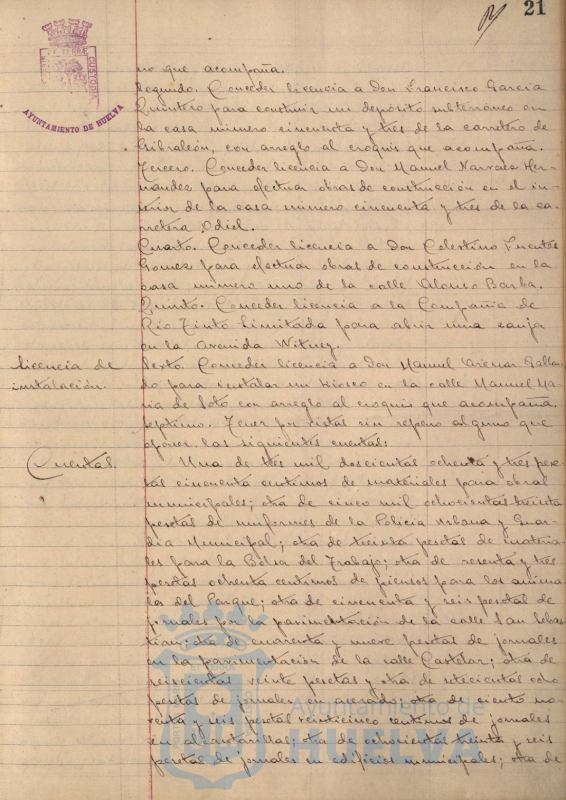 21
AYUNTAMIENTO DE HUELVA
no que acompaña.
Segundo. Conceder licencia a Don Francisco Garcia
Quintero para construir un depósito subterraneo en
la casa número cincuenta y tres de la carretera de
Gibraleón, con arreglo al croquis que acompaña.
Tercero. Conceder licencia a Don Manuel Narvaez Her-
nandez para efectuar obras de construcción en el in-
terior de la casa número cincuenta y tres de la ca-
rretera Odiel.
Cuarto. Conceder licencia a Don Celestino Fuentes
Gomez para efectuar obras de construcción en la
casa número uno de la calle Alonso Barba.
Quinto. Conceder licencia a la Compañia de
Rio Tinto Limitada para abrir una zanja
en la Avenida Witney.
Licencia de
instalación.
Sexto. Conceder licencia a Don Manuel Gallar-
do para instalar un Kiosco en la calle Manuel Ma-
ria de Soto con arreglo al croquis que acompaña.
Septimo. Tener por vistas sin reparo alguno que
oponer, las siguientes cuentas:
Cuentas.
Una de tres mil doscientas ochenta y tres pese-
tas cincuenta centimos de materiales para obras
municipales; otra de cinco mil ochocientas treinta
pesetas de uniformes de la Policia Urbana y Guar-
dia Municipal; otra de treinta pesetas de materia-
les para la Bolsa del Trabajo; otra de sesenta y tres
pesetas ochenta centimos de piensos para los anima-
les del Parque; otra de cincuenta y seis pesetas de
jornales por la pavimentación de la calle San Sebas-
tian; otra de cuarenta y nueve pesetas de jornales
en la pavimentación de la calle Castelar; otra de
seiscientas veinte pesetas y otra de setecientas ocho
pesetas de jornales en acerado; otra de ciento no-
venta y seis pesetas veinticinco centimos de jornales
en alcantarillas; otra de ochocientas treinta y seis
pesetas de jornales en edificios municipales; otra de
Ayuntamiento de
HUELVA